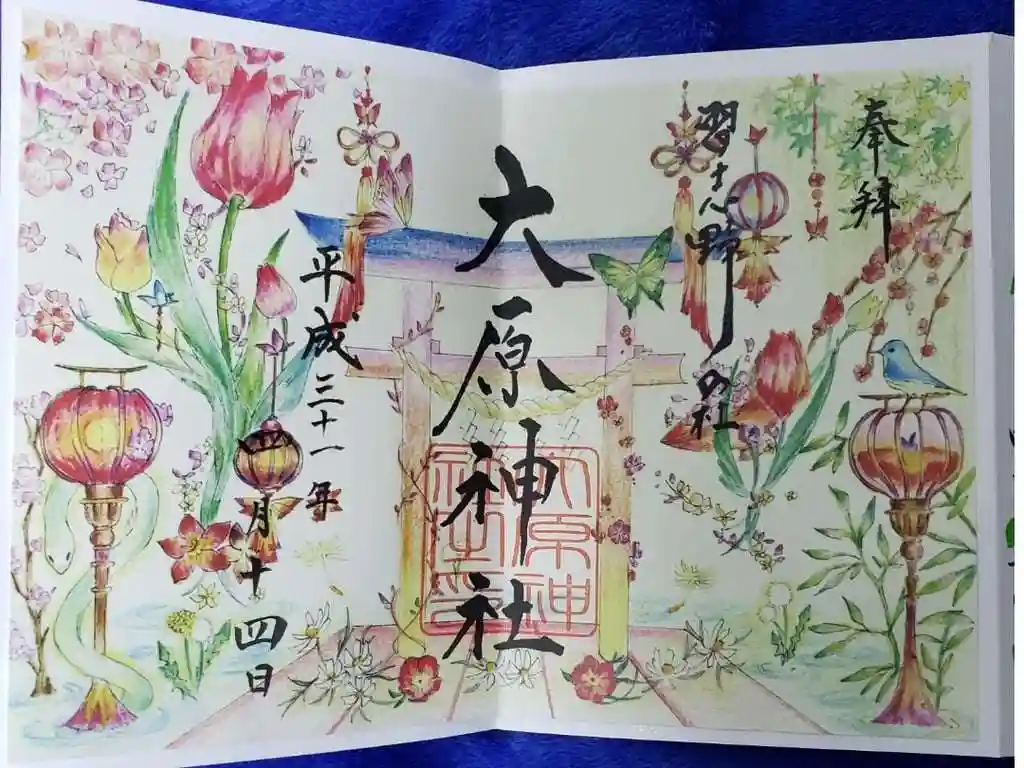 奉拝
習志野の社
大原神社
大原神社之印
平成三十一年
四月十四日